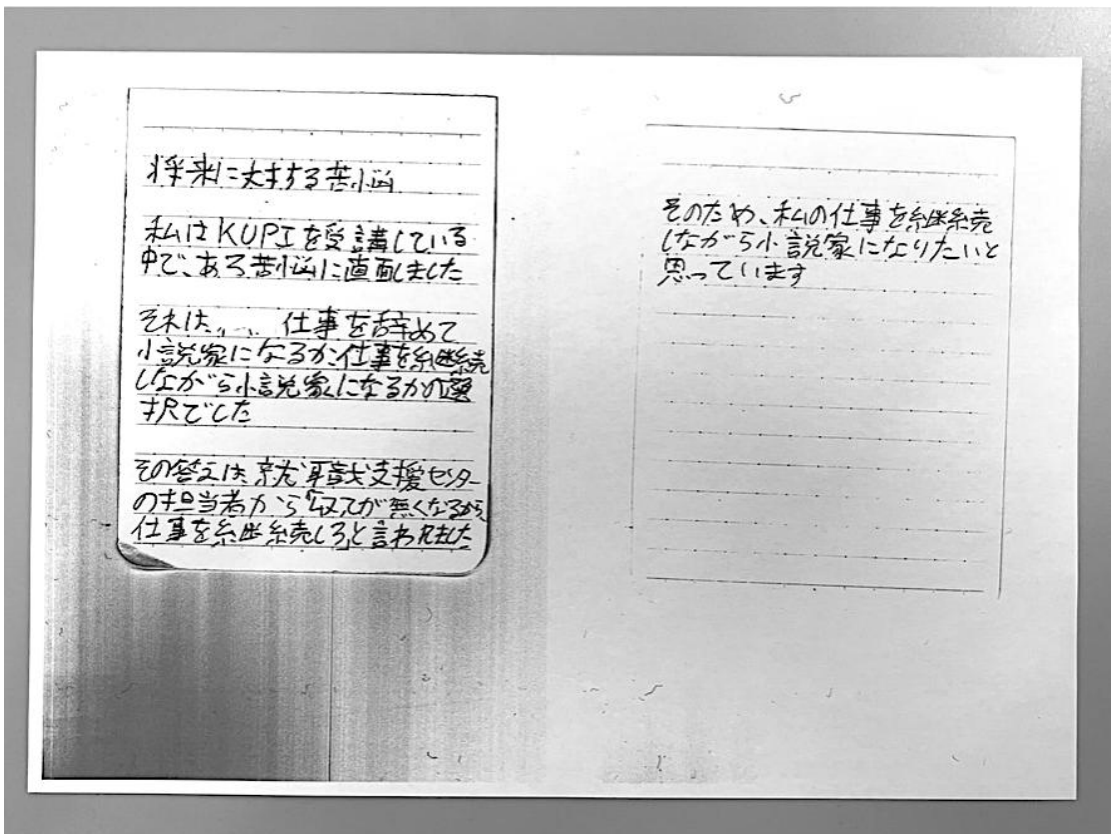 将来に対する苦悩
私はKUPIを受講している
中で、ある苦悩に直面しました
それは、、、仕事を辞めて
小説家になるか仕事を継続
しながら小説家になるかの選
択でした
その答えは就職支援センター
の担当者から「収入が無くなるから、
仕事を継続しろ」と言われました
そのため、私の仕事を継続
しながら小説家になりたいと
思っています